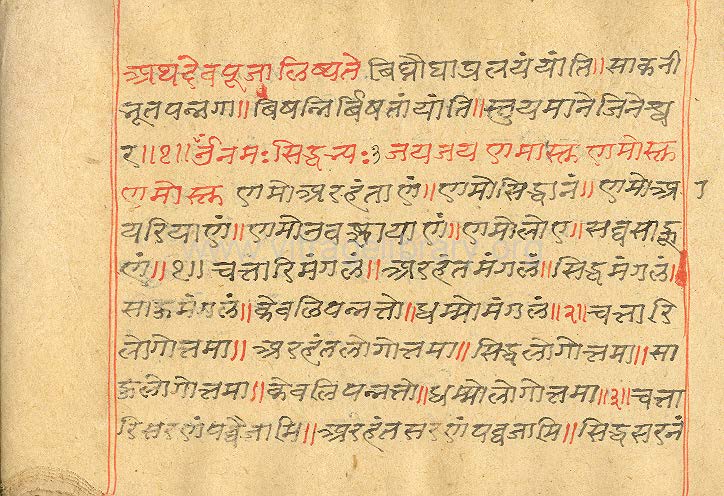 अथदेवपूजालिष्यते विघ्नौघाप्रलयंयांति॥साकनी
भूतपन्नगा॥विषन्निर्विषतांयांति॥स्तुयमानेजिनेश्व
र॥१॥ॐनमःसिद्धेभ्यः३जयजयणमोस्तुणमोस्तु
णमोस्तु णमोअरहंताणं॥णमोसिद्धानं॥णमोअ
यरियाणं॥णमोउवझायाणं॥णमोलोए॥सव्वसाहू
णं॥१॥चत्तारिमंगलं॥अरहंतमंगलं॥सिद्धमंगलं॥
साहुमंगलं॥केवलिपन्नत्तो॥धम्मोमंगलं॥२॥चत्तारि
लोगोत्तमा॥अरहंतलोगोत्तमा॥सिद्धलोगोत्तमा॥सा
हुलोगोत्तमा॥केवलिपन्नत्तो॥धम्मोलोगोत्तमा॥३॥चत्ता
रिसरणंपव्वैजामि॥अरहंतसरणंपव्वजामि॥सिद्धसरनं